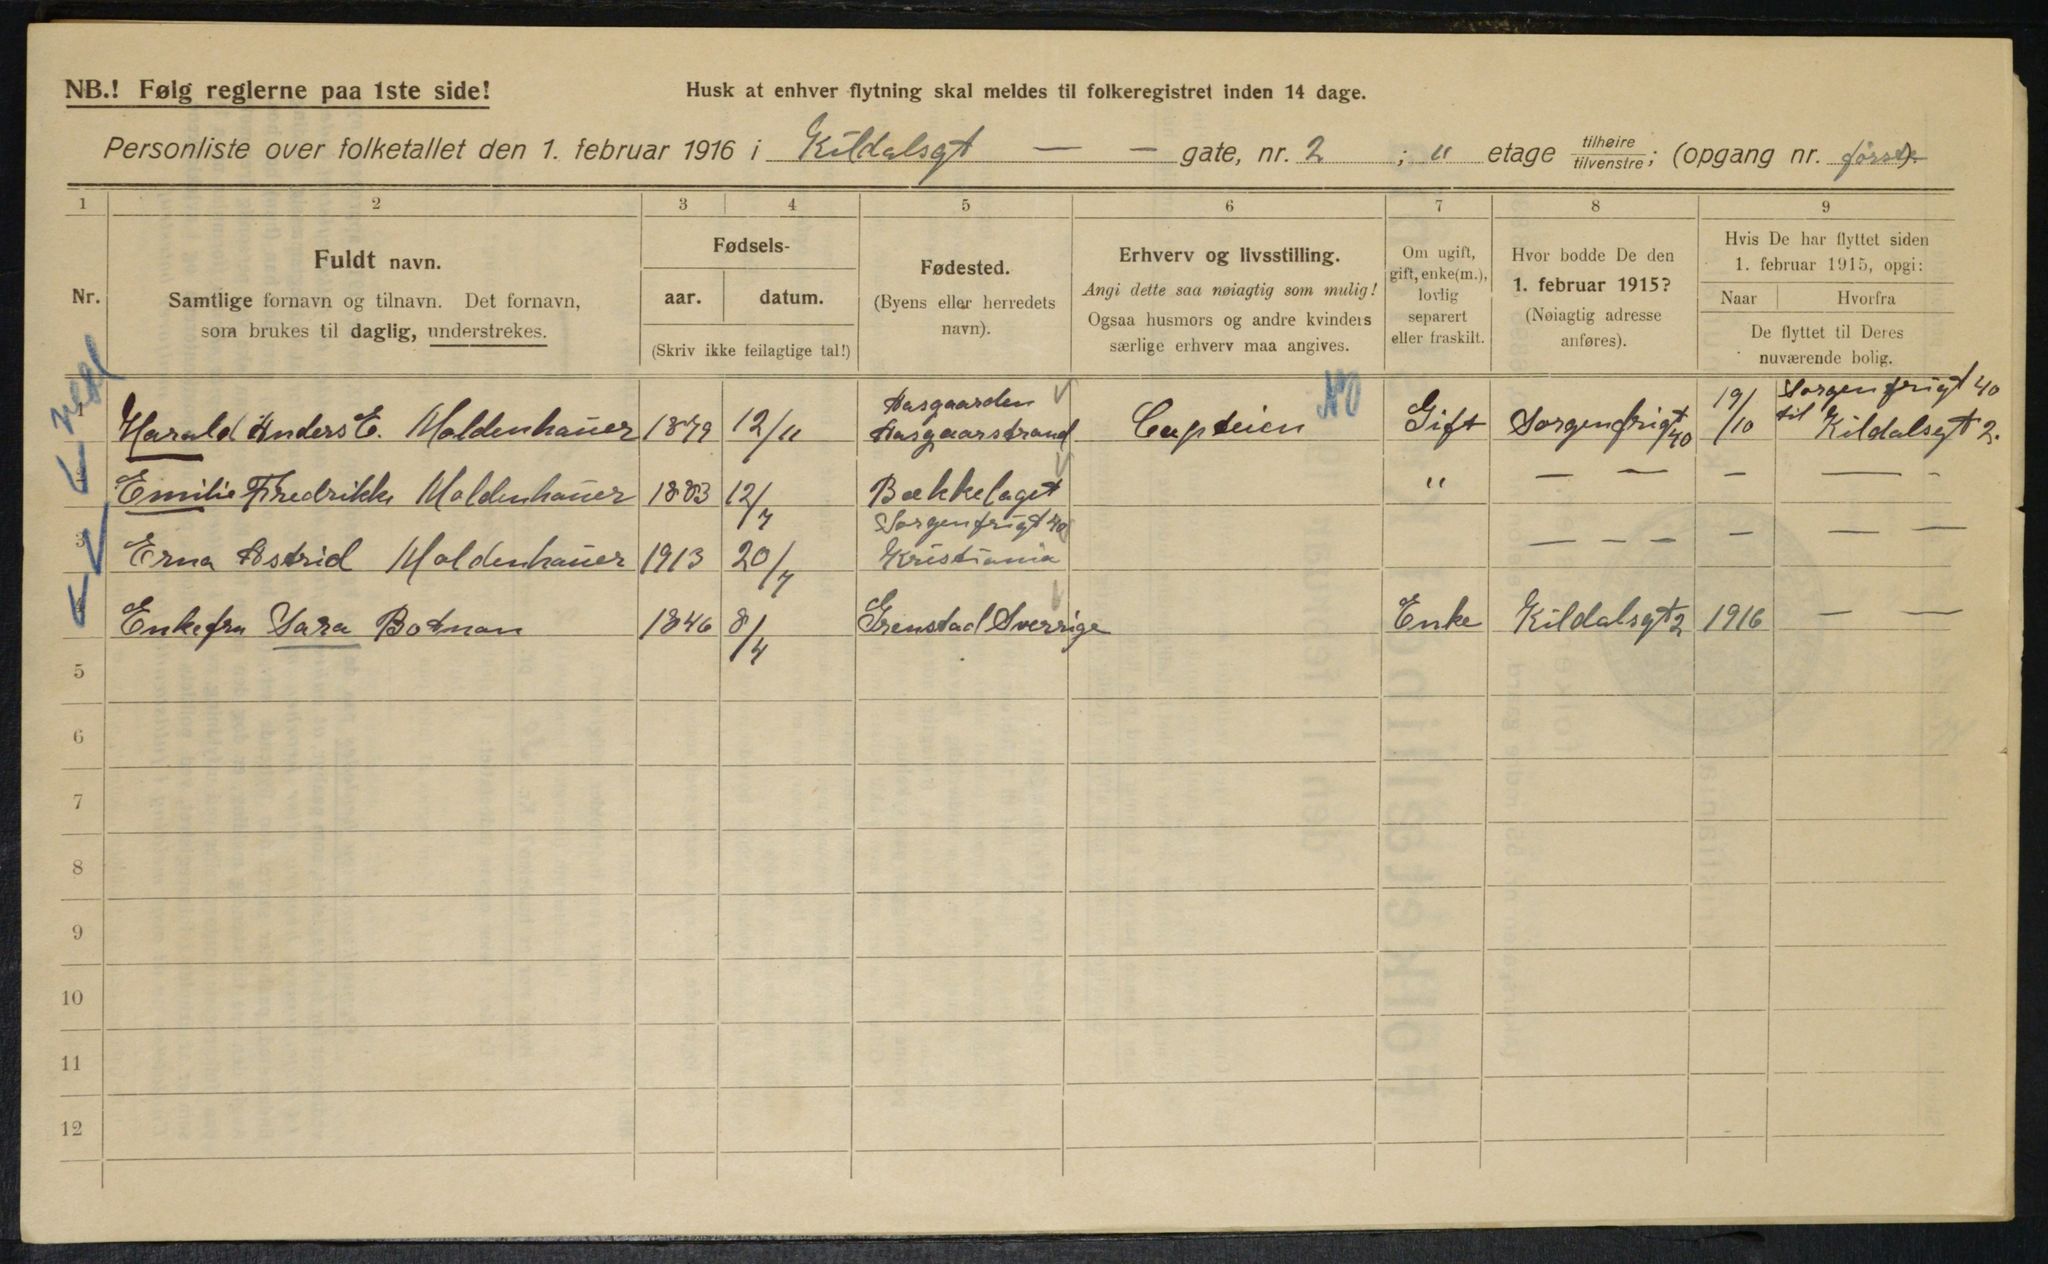 NB.! Følg reglerne paa 1ste side!
Husk at enhver flytning skal meldes til folkeregistret inden 14 dage.
Personliste over folketallet den 1. februar 1916 i Kildalsgt — — gate, nr. 2 ; " etage tilhøire/tilvenstre; (opgang nr. første).
1 2 3 4 5 6 7 8 9
Nr.
Fuldt navn.
Samtlige fornavn og tilnavn. Det fornavn,
som brukes til daglig, understrekes.
Fødsels-
aar. datum.
(Skriv ikke feilagtige tal!)
Fødested.
(Byens eller herredets
navn).
Erhverv og livsstilling.
Angi dette saa nøiagtig som mulig!
Ogsaa husmors og andre kvinders
særlige erhverv maa angives.
Om ugift,
gift, enke(m.),
lovlig
separert
eller fraskilt.
Hvor bodde De den
1. februar 1915?
(Nøiagtig adresse
anføres).
Hvis De har flyttet siden
1. februar 1915, opgi:
Naar Hvorfra
De flyttet til Deres
nuværende bolig.
Aasgaarden Sorgenfrigt 40
Harald Anders E. Moldenhauer 1879 12/11 Aasgaarstrand Captein Gift Sorgenfrigt 40 19/10 til Kildalsgt 2.
Emilie Fredrikke Moldenhauer 1883 12/7 Bækkelaget " — — — — -
Sorgenfrigt 40
3 Erna Astrid Moldenhauer 1913 20/7 Kristiania — — — — — —
Enkefru Sara Botman 1846 8/4 Grenstad Sverrige Enke Kildalsgt 2 1916 — —
5
6
7
8
9
10
11
12